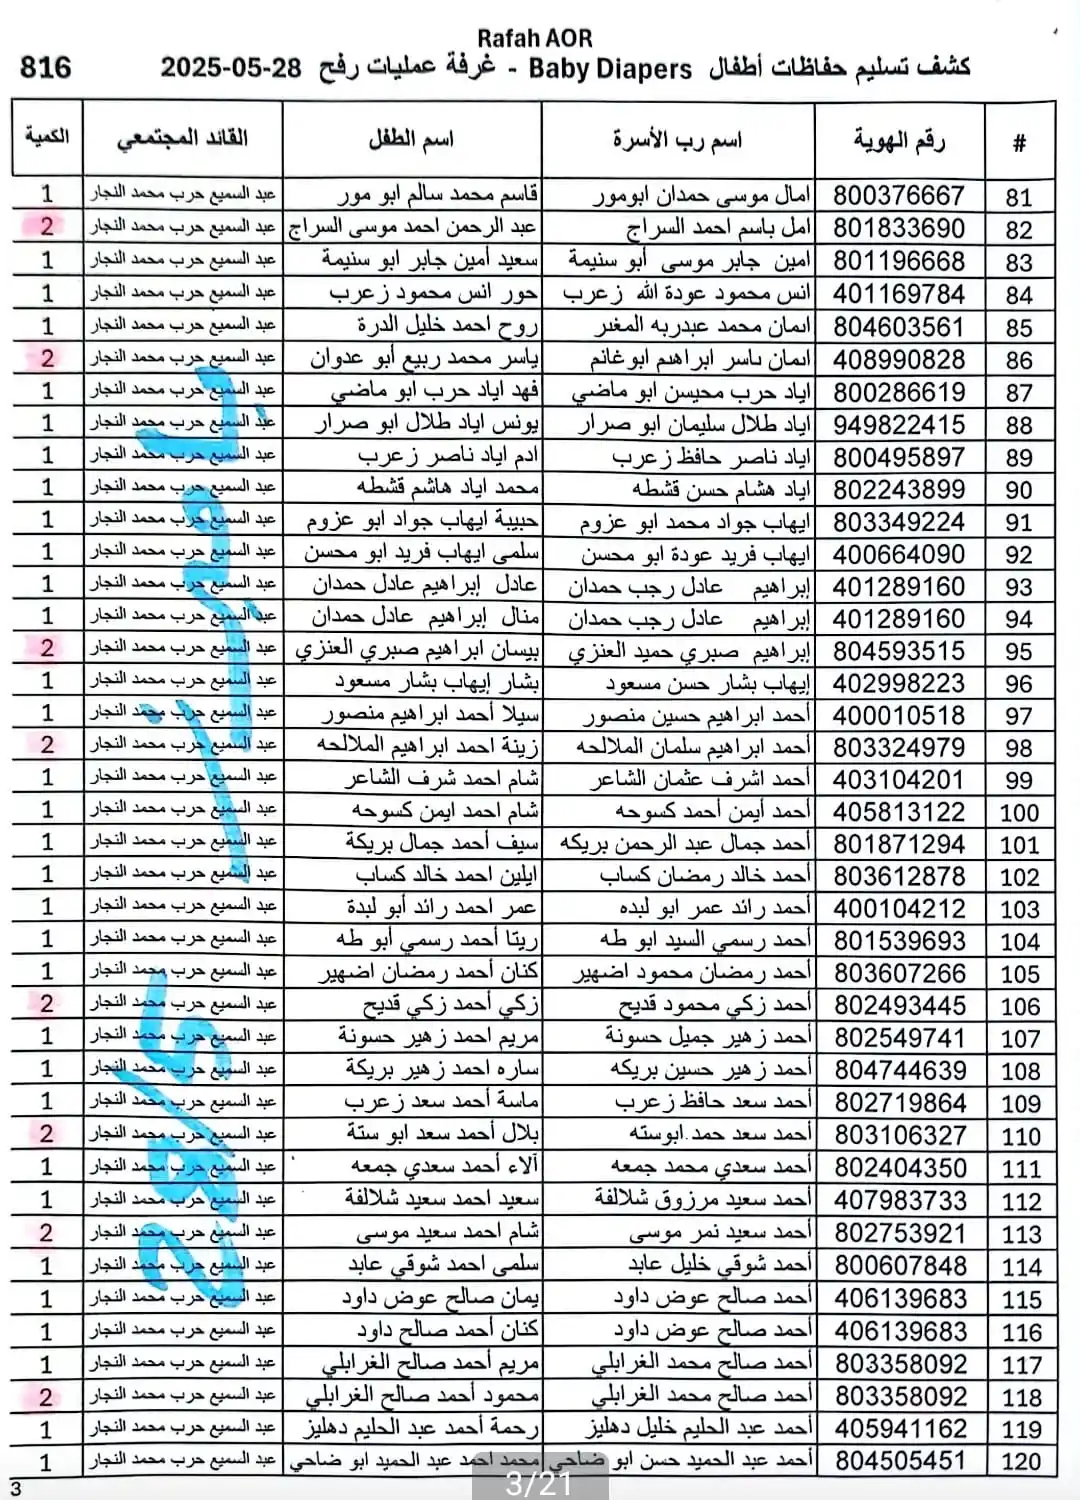 Rafah AOR
كشف تسليم حفاظات أطفال Baby Diapers - غرفة عمليات رفح 28-05-2025
816
# رقم الهوية اسم رب الأسرة اسم الطفل القائد المجتمعي الكمية
81 800376667 امال موسى حمدان ابومور قاسم محمد سالم ابو مور عبد السميع حرب محمد النجار 1
82 801833690 امل باسم احمد السراج عبد الرحمن احمد موسى السراج عبد السميع حرب محمد النجار 2
83 801196668 امين جابر موسى أبو سنيمة سعيد أمين جابر ابو سنيمة عبد السميع حرب محمد النجار 1
84 401169784 انس محمود عودة الله زعرب حور انس محمود زعرب عبد السميع حرب محمد النجار 1
85 804603561 ايمان محمد عبدربه المغير روح احمد خليل الدرة عبد السميع حرب محمد النجار 1
86 408990828 ايمان ياسر ابراهيم ابوغانم ياسر محمد ربيع أبو عدوان عبد السميع حرب محمد النجار 2
87 800286619 اياد حرب محيسن ابو ماضي فهد اياد حرب ابو ماضي عبد السميع حرب محمد النجار 1
88 949822415 اياد طلال سليمان ابو صرار يونس اياد طلال ابو صرار عبد السميع حرب محمد النجار 1
89 800495897 اياد ناصر حافظ زعرب ادم اياد ناصر زعرب عبد السميع حرب محمد النجار 1
90 802243899 اياد هشام حسن قشطه محمد اياد هاشم قشطه عبد السميع حرب محمد النجار 1
91 803349224 ايهاب جواد محمد ابو عزوم حبيبة ايهاب جواد ابو عزوم عبد السميع حرب محمد النجار 1
92 400664090 ايهاب فريد عودة ابو محسن سلمى ايهاب فريد ابو محسن عبد السميع حرب محمد النجار 1
93 401289160 إبراهيم عادل رجب حمدان عادل إبراهيم عادل حمدان عبد السميع حرب محمد النجار 1
94 401289160 إبراهيم عادل رجب حمدان منال إبراهيم عادل حمدان عبد السميع حرب محمد النجار 1
95 804593515 إبراهيم صبري حميد العنزي بيسان ابراهيم صبري العنزي عبد السميع حرب محمد النجار 2
96 402998223 إيهاب بشار حسن مسعود بشار إيهاب بشار مسعود عبد السميع حرب محمد النجار 1
97 400010518 أحمد ابراهيم حسين منصور سيلا أحمد ابراهيم منصور عبد السميع حرب محمد النجار 1
98 803324979 أحمد ابراهيم سلمان الملالحه زينة احمد ابراهيم الملالحه عبد السميع حرب محمد النجار 2
99 403104201 أحمد اشرف عثمان الشاعر شام احمد شرف الشاعر عبد السميع حرب محمد النجار 1
100 405813122 أحمد أيمن أحمد كسوحه شام احمد ايمن كسوحه عبد السميع حرب محمد النجار 1
101 801871294 أحمد جمال عبد الرحمن بريكه سيف أحمد جمال بريكة عبد السميع حرب محمد النجار 1
102 803612878 أحمد خالد رمضان كساب ايلين احمد خالد كساب عبد السميع حرب محمد النجار 1
103 400104212 أحمد رائد عمر ابو لبده عمر احمد رائد أبو لبدة عبد السميع حرب محمد النجار 1
104 801539693 أحمد رسمي السيد ابو طه ريتا أحمد رسمي أبو طه عبد السميع حرب محمد النجار 1
105 803607266 أحمد رمضان محمود اضهير كنان أحمد رمضان اضهير عبد السميع حرب محمد النجار 1
106 802493445 أحمد زكي محمود قديح زكي أحمد زكي قديح عبد السميع حرب محمد النجار 2
107 802549741 أحمد زهير جميل حسونة مريم احمد زهير حسونة عبد السميع حرب محمد النجار 1
108 804744639 أحمد زهير حسين بريكه ساره احمد زهير بريكة عبد السميع حرب محمد النجار 1
109 802719864 أحمد سعد حافظ زعرب ماسة أحمد سعد زعرب عبد السميع حرب محمد النجار 1
110 803106327 أحمد سعد حمد.ابوسته بلال أحمد سعد ابو ستة عبد السميع حرب محمد النجار 2
111 802404350 أحمد سعدي محمد جمعه آلاء أحمد سعدي جمعه عبد السميع حرب محمد النجار 1
112 407983733 أحمد سعيد مرزوق شلالفة سعيد احمد سعيد شلالفة عبد السميع حرب محمد النجار 1
113 802753921 أحمد سعيد نمر موسى شام احمد سعيد موسى عبد السميع حرب محمد النجار 2
114 800607848 أحمد شوقي خليل عابد سلمى احمد شوقي عابد عبد السميع حرب محمد النجار 1
115 406139683 أحمد صالح عوض داود يمان صالح عوض داود عبد السميع حرب محمد النجار 1
116 406139683 أحمد صالح عوض داود كنان أحمد صالح داود عبد السميع حرب محمد النجار 1
117 803358092 أحمد صالح محمد الغرابلي مريم أحمد صالح الغرابلي عبد السميع حرب محمد النجار 1
118 803358092 أحمد صالح محمد الغرابلي محمود أحمد صالح الغرابلي عبد السميع حرب محمد النجار 2
119 405941162 أحمد عبد الحليم خليل دهليز رحمة أحمد عبد الحليم دهليز عبد السميع حرب محمد النجار 1
120 804505451 أحمد عبد الحميد حسن ابو ضاحي محمد احمد عبد الحميد ابو ضاحي عبد السميع حرب محمد النجار 1
3/21
3
28/5